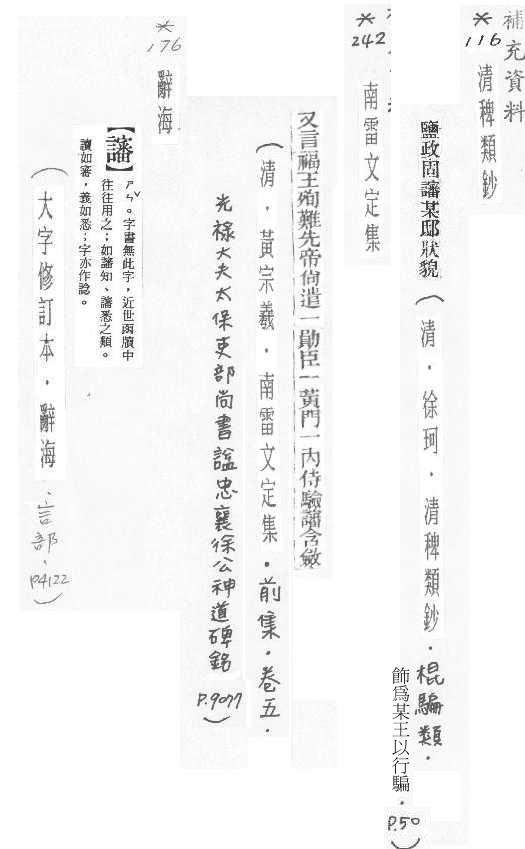 補充資料
*
116
清稗類鈔
鹽政固讅某邸狀貌
（清．徐珂．清稗類鈔．棍騙類．
飾爲某王以行騙．
P.50）
*
242
南雷文定集
又言福王殉難先帝尙遣一勛臣一黃門一內侍驗讅含斂
（清．黃宗羲．南雷文定集．前集．卷五．
光祿大夫太保吏部尚書諡忠襄徐公神道碑銘
P.9077）
*
176
辭海
【讅】ㄕㄣˇ。字書無此字，近世函牘中
往往用之；如讅知、讅悉之類。
讀如審，義如悉；字亦作諗。
（大字修訂本．辭海．言部．
P4122）